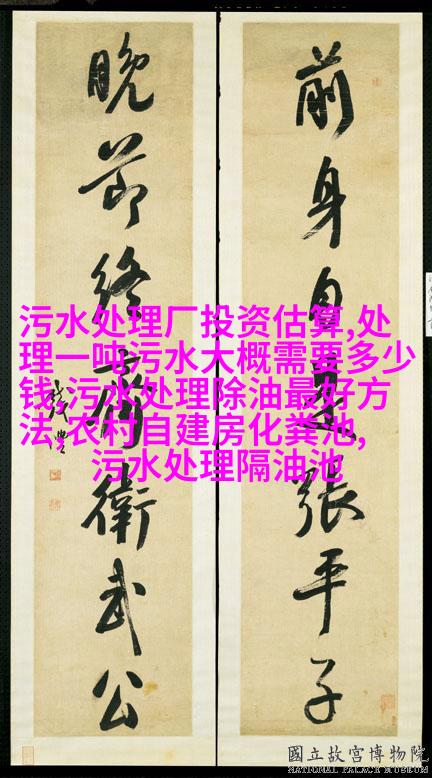 前身自張平子
晚節終衛武公
污水处理厂投资估算,处
理一吨污水大概需要多少
钱,污水处理除油最好方
法,农村自建房化粪池,
污水处理隔油池
國立故宮博物院
NATIONAL PALACE MUSEUM